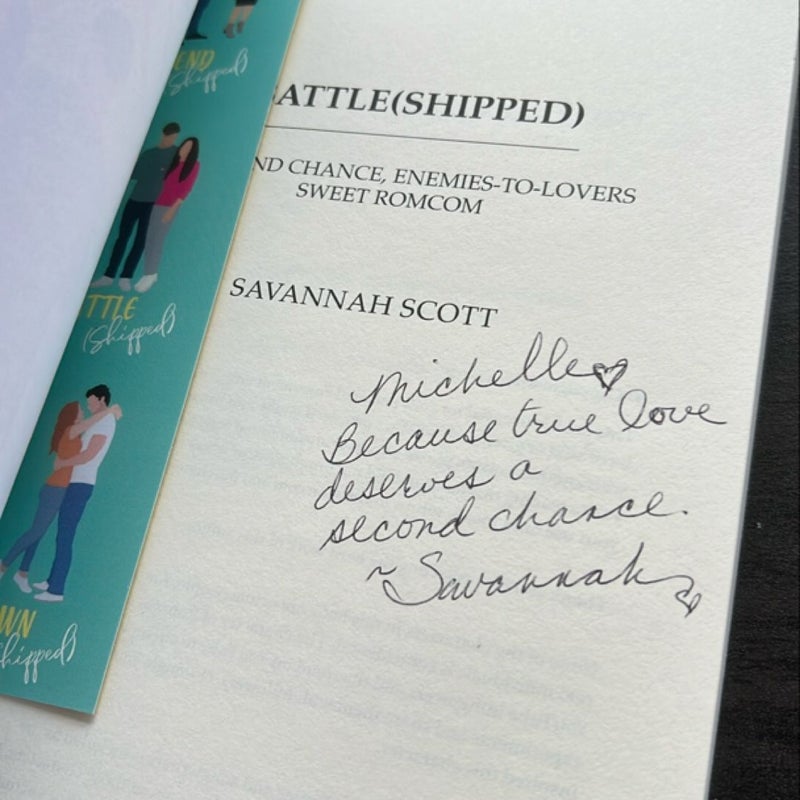 END
(Shipped)
TTLE
(Shipped)
WN
hipped)
ATTLE(SHIPPED)
ND CHANCE, ENEMIES-TO-LOVERS
SWEET ROMCOM
SAVANNAH SCOTT
Michelle
Because true love
deserves a
second chance.
~Savannah